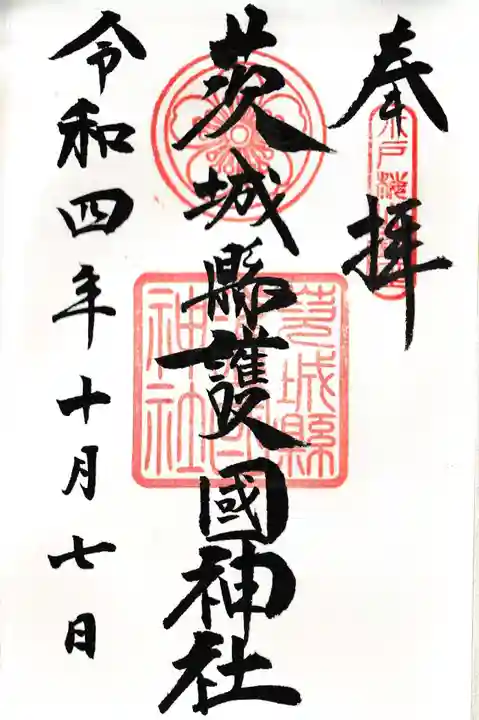 奉拝
水戸桜山鎮座
茨城縣護國神社
茨城縣護國神社
令和四年十月七日